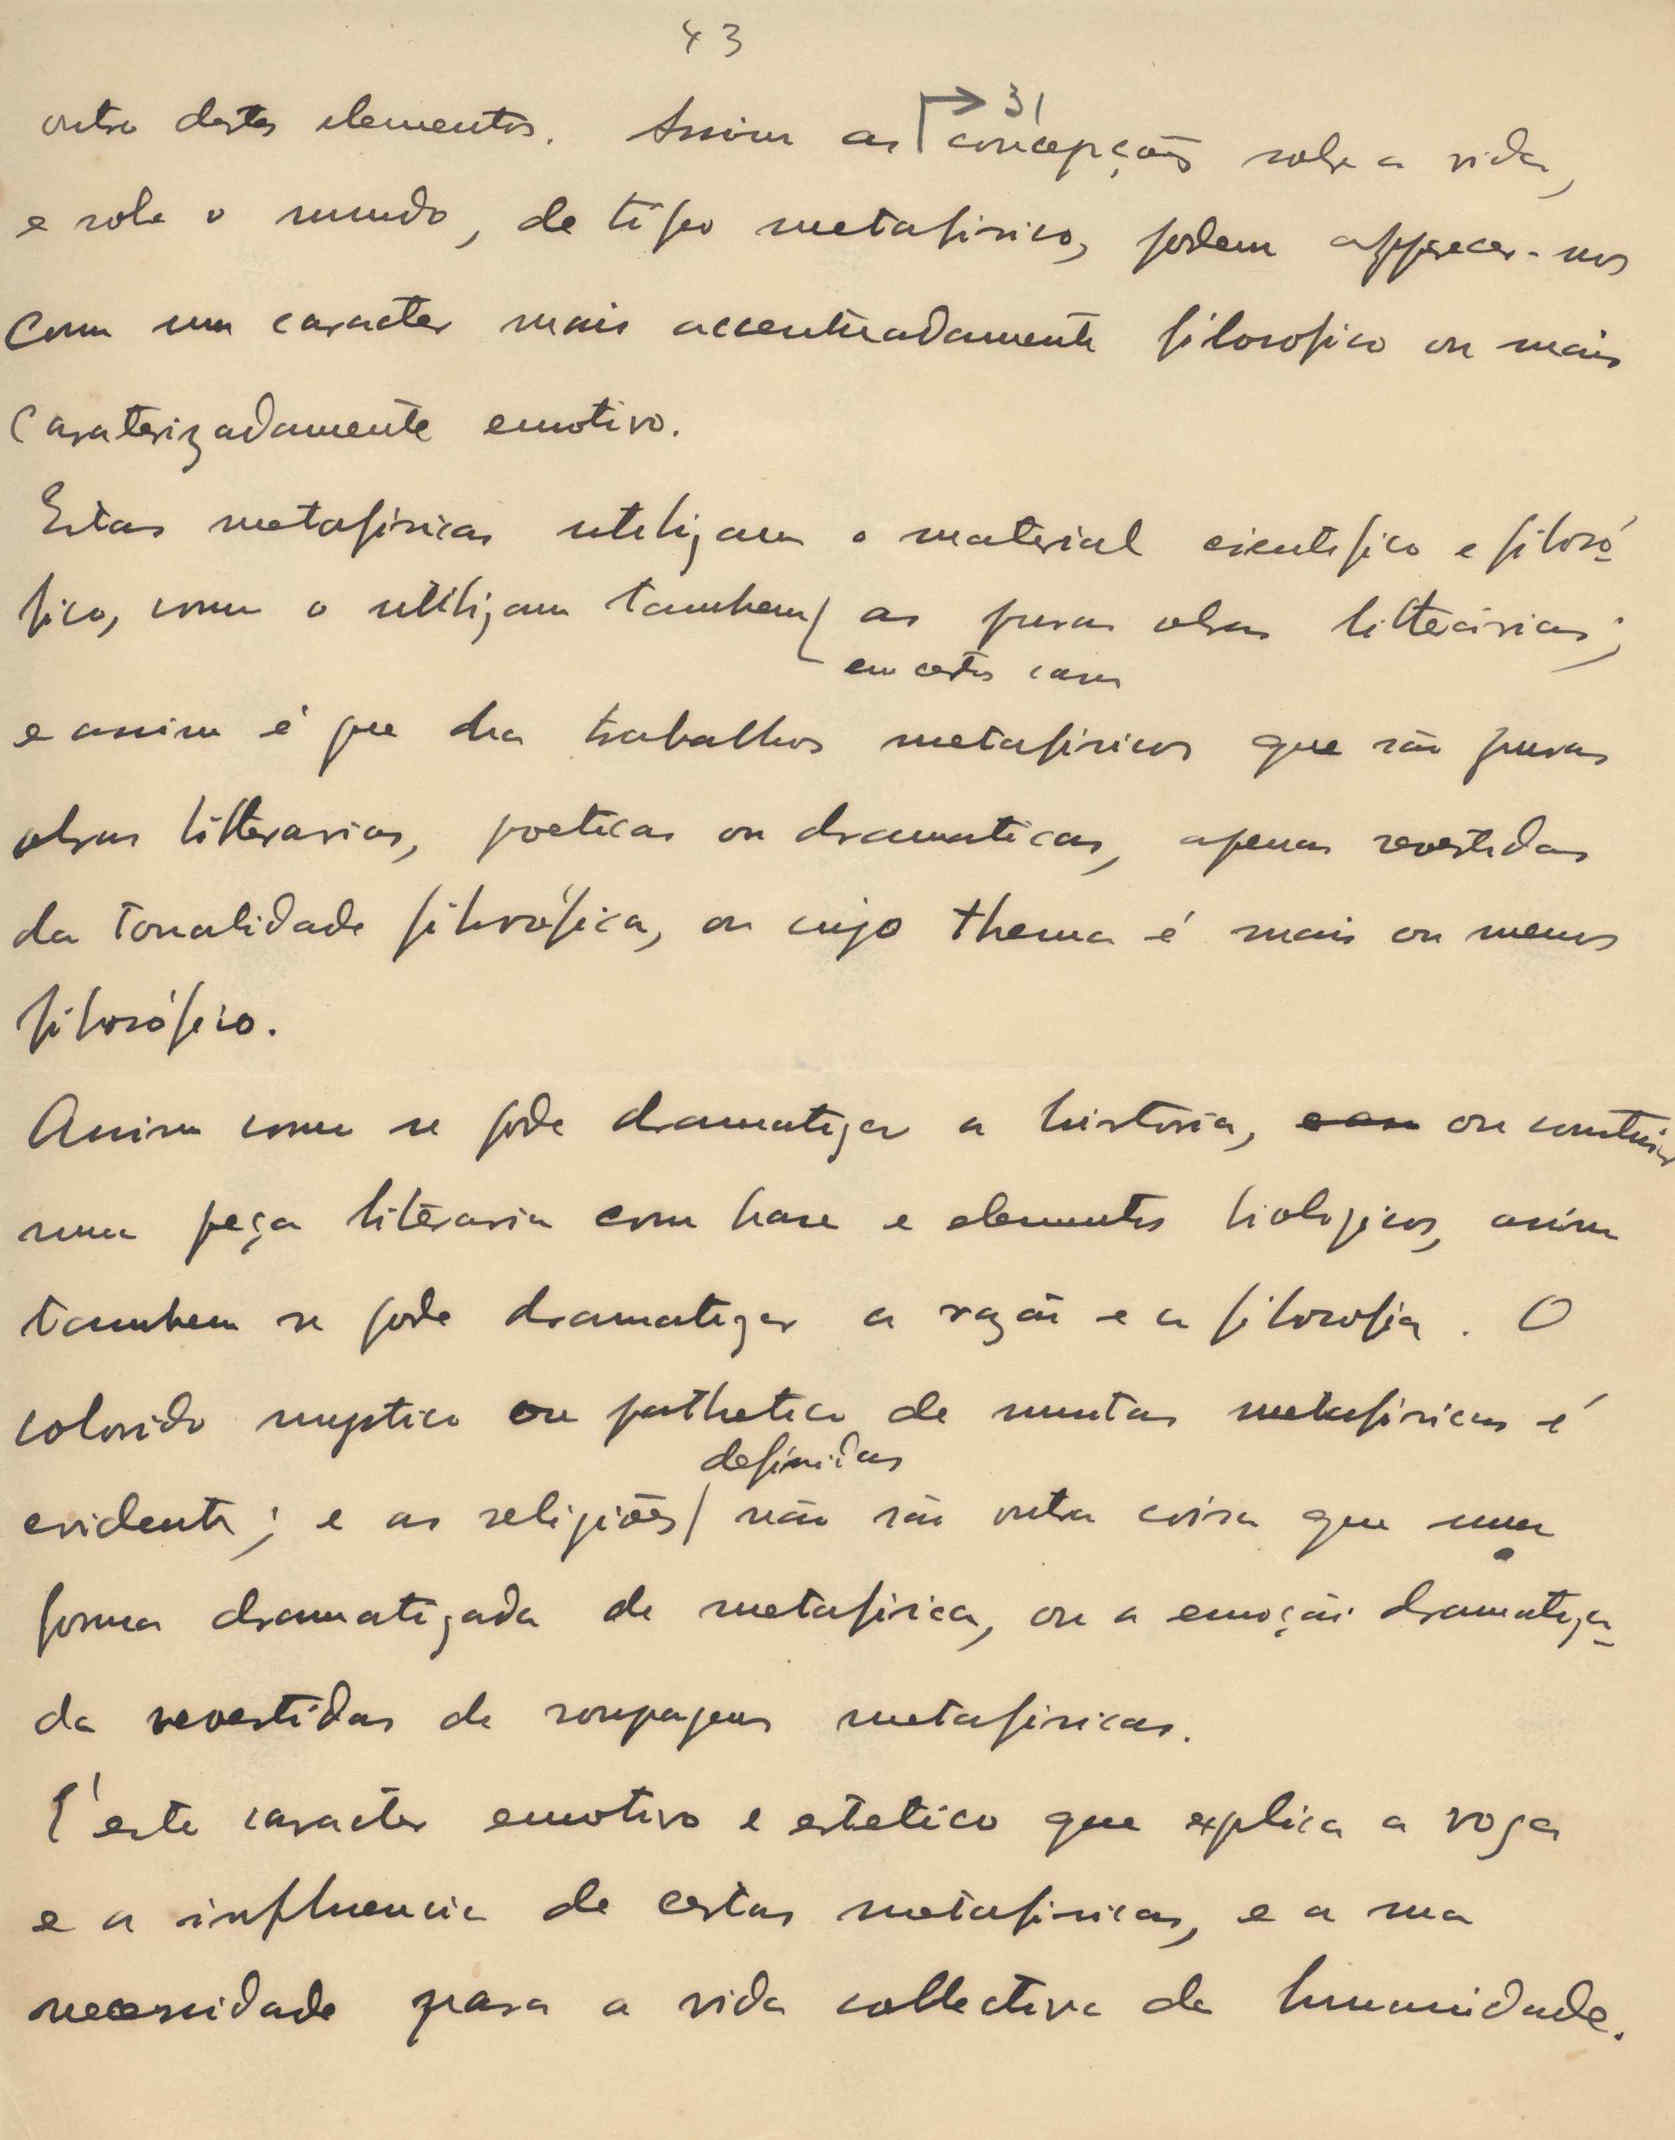 43
outro destes elementos. Assim as concepções sobre a vida,
31
e sobre o mundo, de tipo metafisico, podem apparecer-nos
com um caracter mais accentuadamente filosofico ou mais
caraterizadamente emotivo.
Estas metafisicas utilizam o material cientifico e filosó-
fico, como o utilizam tambem as puras obras litterárias;
em certos casos
e assim é que ha trabalhos metafisicos que são puras
obras litterarias, poeticas ou dramaticas, apenas revestidas
da tonalidade filosófica, ou cujo thema é mais ou menos
filosófico.
Assim como se pode dramatizar a historia, ou construir
uma peça literaria com base e elementos biologicos, assim
tambem se pode dramatizar a razão e a filosofia. O
colorido mystico ou pathetico de muitas metafisicas é
definidas
evidente; e as religiões não são outra coisa que uma
forma dramatizada de metafisica, ou a emoção dramatiza-
da revestidas de roupagens metafisicas.
É este caracter emotivo e estetico que explica a voga
e a influencia de certas metafisicas, e a sua
necessidade para a vida collectiva da humanidade.